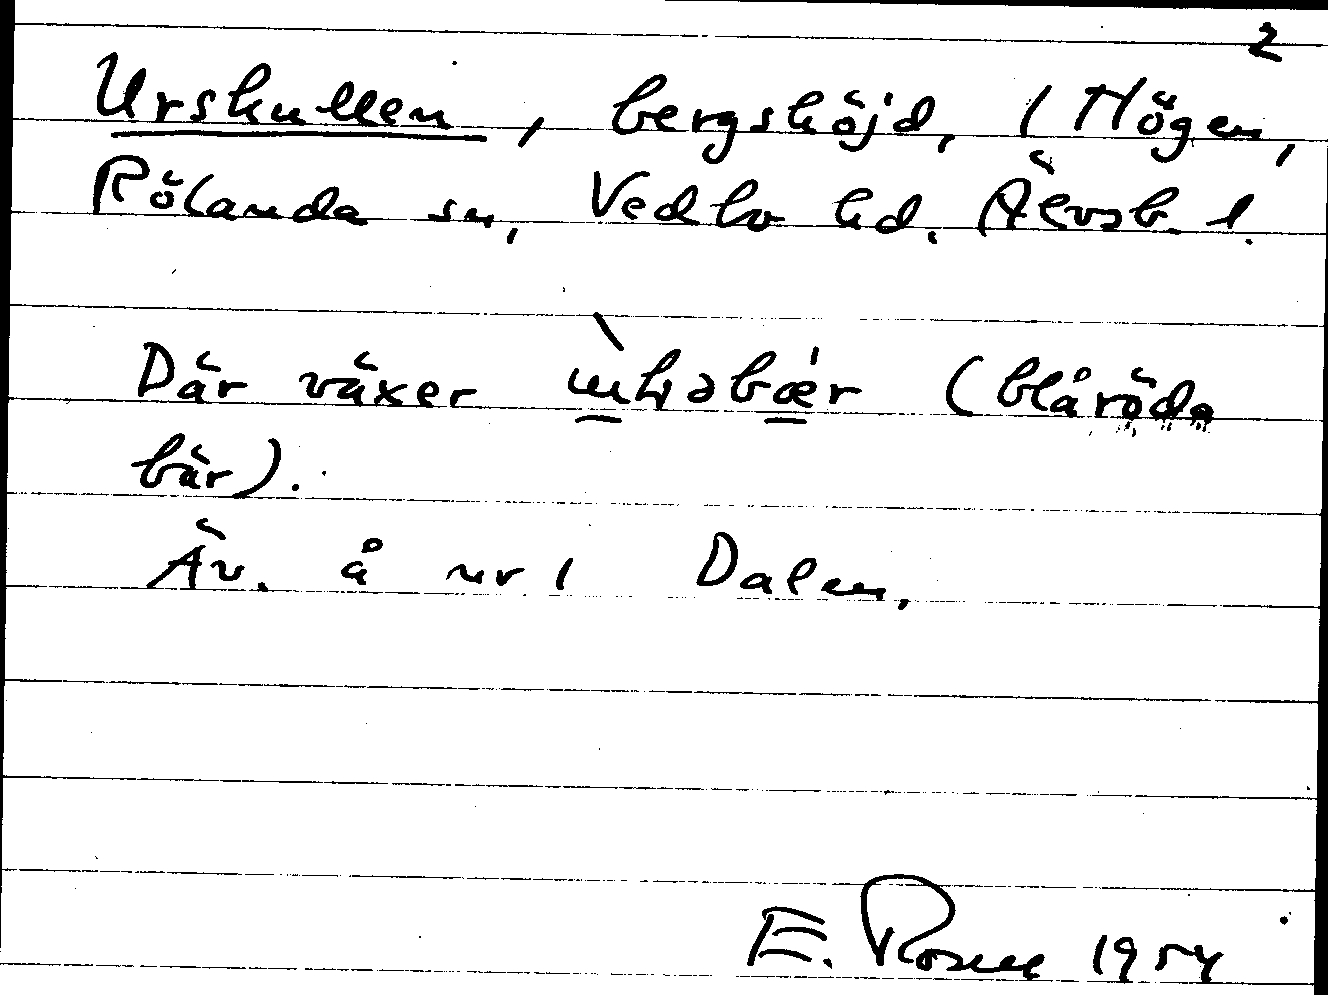 2
Urskullen, bergshöjd, 1 Högen,
Rölanda sn, Vedbo hd. Älvsb. l.
Där växer (blåröda
bär).
Äv. å nr 1 Dalen,
E. Rosell 1954